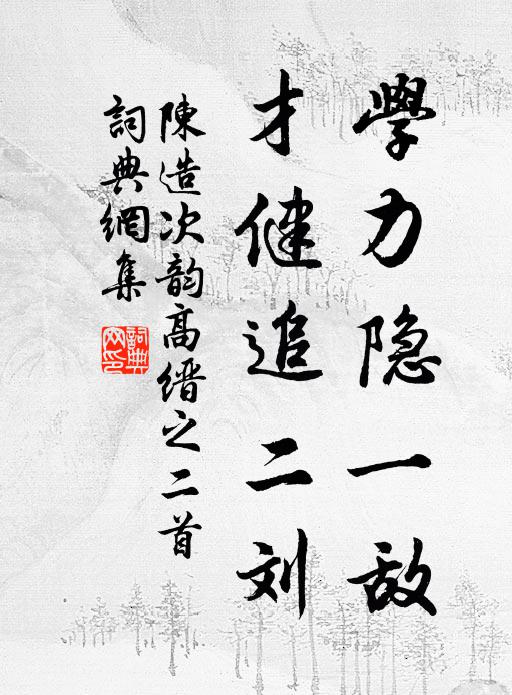 學力隐一敌
才健追二刘
陳造次韵高缙之二首
詞典網集
詞典網印